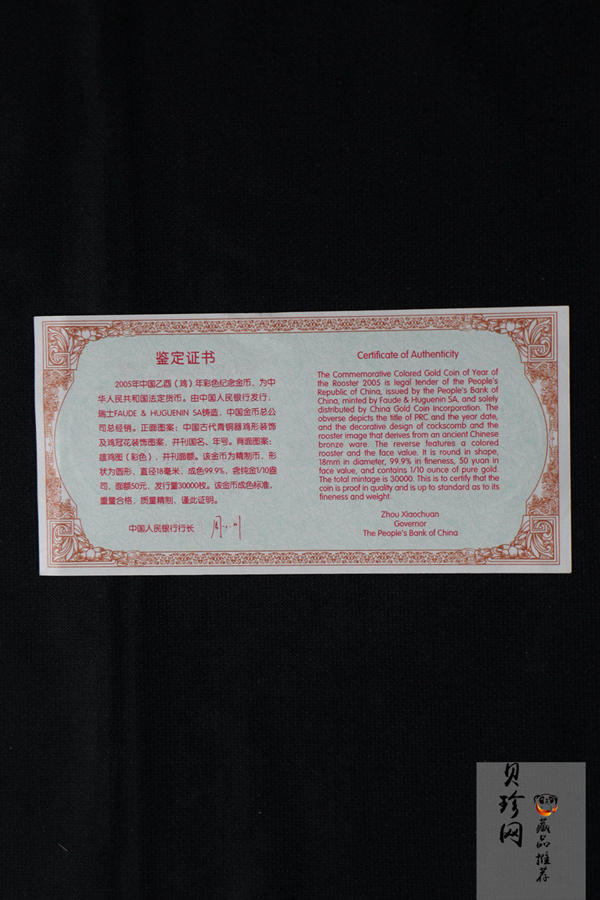 鉴定证书
2005年中国乙酉（鸡）年彩色纪念金币，为中
华人民共和国法定货币。由中国人民银行发行，
瑞士FAUDE & HUGUENIN SA铸造，中国金币总公
司总经销。正面图案：中国古代青铜器鸡形装饰
及鸡冠花装饰图案，并刊国名、年号。背面图案：
雄鸡图（彩色），并刊面额。该金币为精制币，形
状为圆形，直径18毫米，成色99.9%，含纯金1/10盎
司，面额50元，发行量30000枚。该金币成色标准，
重量合格，质量精制，谨此证明。
中国人民银行行长
Certificate of Authenticity
The Commemorative Colored Gold Coin of Year of
the Rooster 2005 is legal tender of the People's
Republic of China, issued by the People's Bank of
China, minted by Faude & Huguenin SA, and solely
distributed by China Gold Coin Incorporation. The
obverse depicts the title of PRC and the year date,
and the decorative design of cockscomb and the
rooster image that derives from an ancient Chinese
bronze ware. The reverse features a colored
rooster and the face value. It is round in shape,
18mm in diameter, 99.9% in fineness, 50 yuan in
face value, and contains 1/10 ounce of pure gold.
The total mintage is 30000. This is to certify that the
coin is proof in quality and is up to standard as to its
fineness and weight.
Zhou Xiaochuan
Governor
The People's Bank of China
贝珍网
藏品推荐